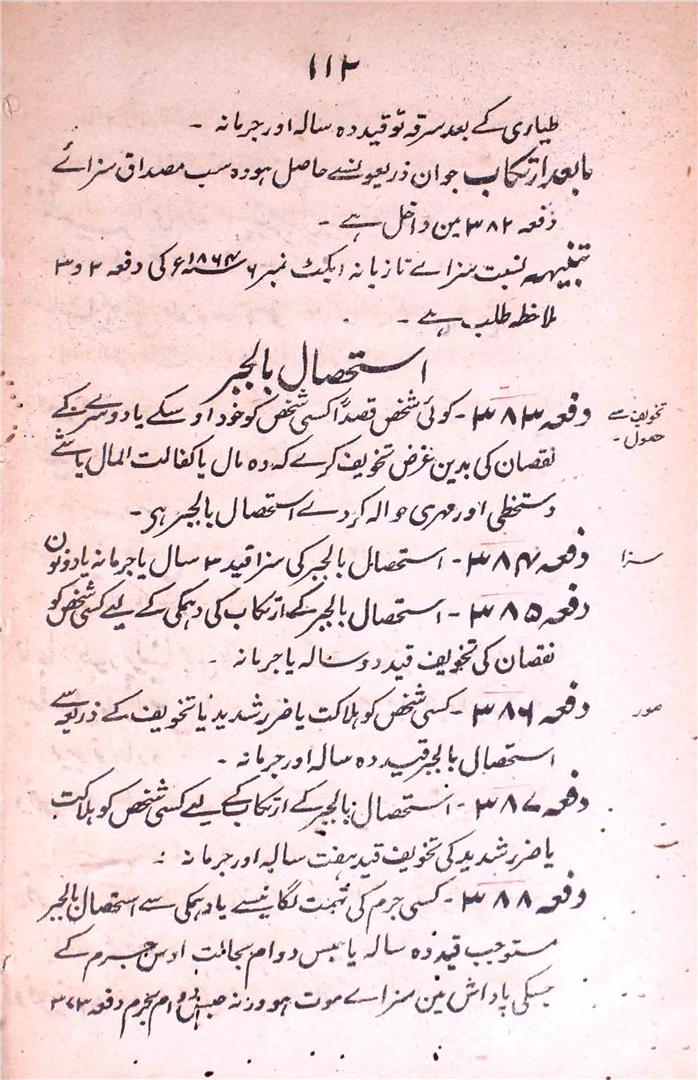 ۱۱۲
طیاری کے بعد سرقہ تو قید دہ سالہ اور جرمانہ ۔
مابعد ارتکاب جو ان ذریعونسے حاصل ہو وہ سب مصداق سزائے
دفعہ ۳۸۲ مین داخل ہے ۔
تنبیہہ نسبت سزاے تازیانہ ایکٹ نمبر ۶ سنہ ۱۸۶۴ء کی دفعہ ۲ و ۳
ملاحظہ طلب ہے ۔
استحصال بالجبر
دفعہ ۳۸۳ ۔ کوئی شخص قصداً کسی شخص کو خود اوسکے یا دوسرے کے
تخویف سے
حصول ۔
نقصان کی بدین غرض تخویف کرے کہ وہ مال یا کفالت المال یا شے
دستخطی اور مہری حوالہ کردے استحصال بالجبر ہی ۔
دفعہ ۳۸۴ ۔ استحصال بالجبر کی سزا قید ۳ سال یا جرمانہ یا دونون
سزا
دفعہ ۳۸۵ ۔ استحصال بالجبر کے ارتکاب کی دہمکی کے لیے کسی شخص کو
نقصان کی تخویف قید دو سالہ یا جرمانہ ۔
دفعہ ۳۸۶ ۔ کسی شخص کو ہلاکت یا ضرر شدید یا تخویف کے ذریعہ سے
صور
استحصال بالجبر قید دہ سالہ اور جرمانہ ۔
دفعہ ۳۸۷ ۔ استحصال بالجبر کے ارتکاب کے لیے کسی شخص کو ہلاکت
یا ضرر شدید کی تخویف قید ہفت سالہ اور جرمانہ ۔
دفعہ ۳۸۸ ۔ کسی جرم کی تہمت لگانیسے یا دہمکی سے استحصال بالجبر
مستوجب قید دہ سالہ یا حبس دوام بحالت اوس جرم کے
جسکی پاداش مین سزاے موت ہو ورنہ حبس دوام بجرم دفعہ ۳۷۳